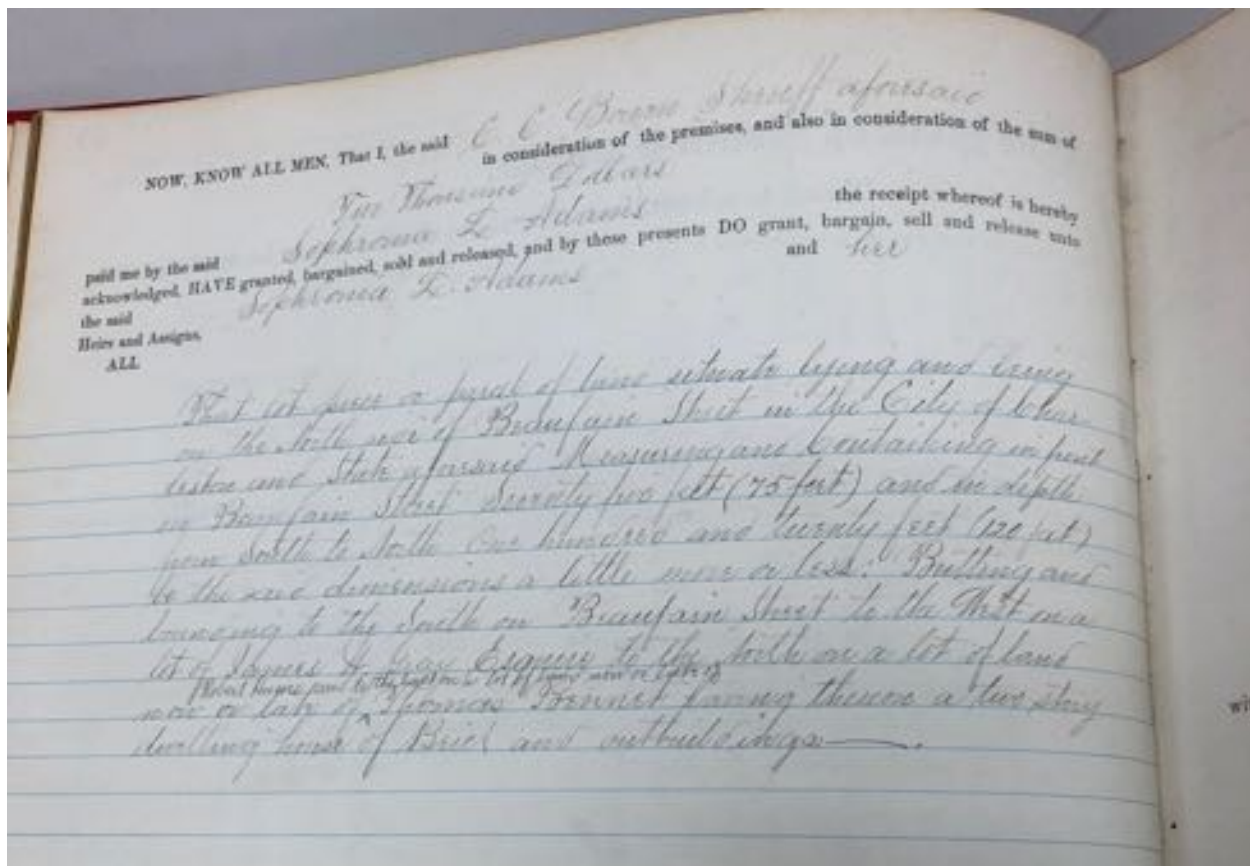 C C Bowen Sheriff aforesaid
NOW, KNOW ALL MEN, That I, the said
in consideration of the premises, and also in consideration of the sum of
Thousand Dollars
paid me by the said Sophronia E Adams the receipt whereof is hereby
acknowledged, HAVE granted, bargained, sold and released, and by these presents DO grant, bargain, sell and release unto
the said Sophronia E. Adams and her
Heirs and Assigns,
ALL
That lot piece or parcel of land situate lying and being
on the North side of Beaufain Street in the City of Char-
leston and State aforesaid Measuring and Containing in front
on Beaufain Street Seventy five feet (75 feet) and in depth
from South to North One hundred and twenty feet (120 feet)
be the said dimensions a little more or less: Butting and
bounding to the South on Beaufain Street to the West on a
lot of James Esquire to the North on a lot of land
to the East on a lot of land now or late of
now or late of Thomas Bennet having thereon a two story
dwelling house of Brick and outbuildings.
wi